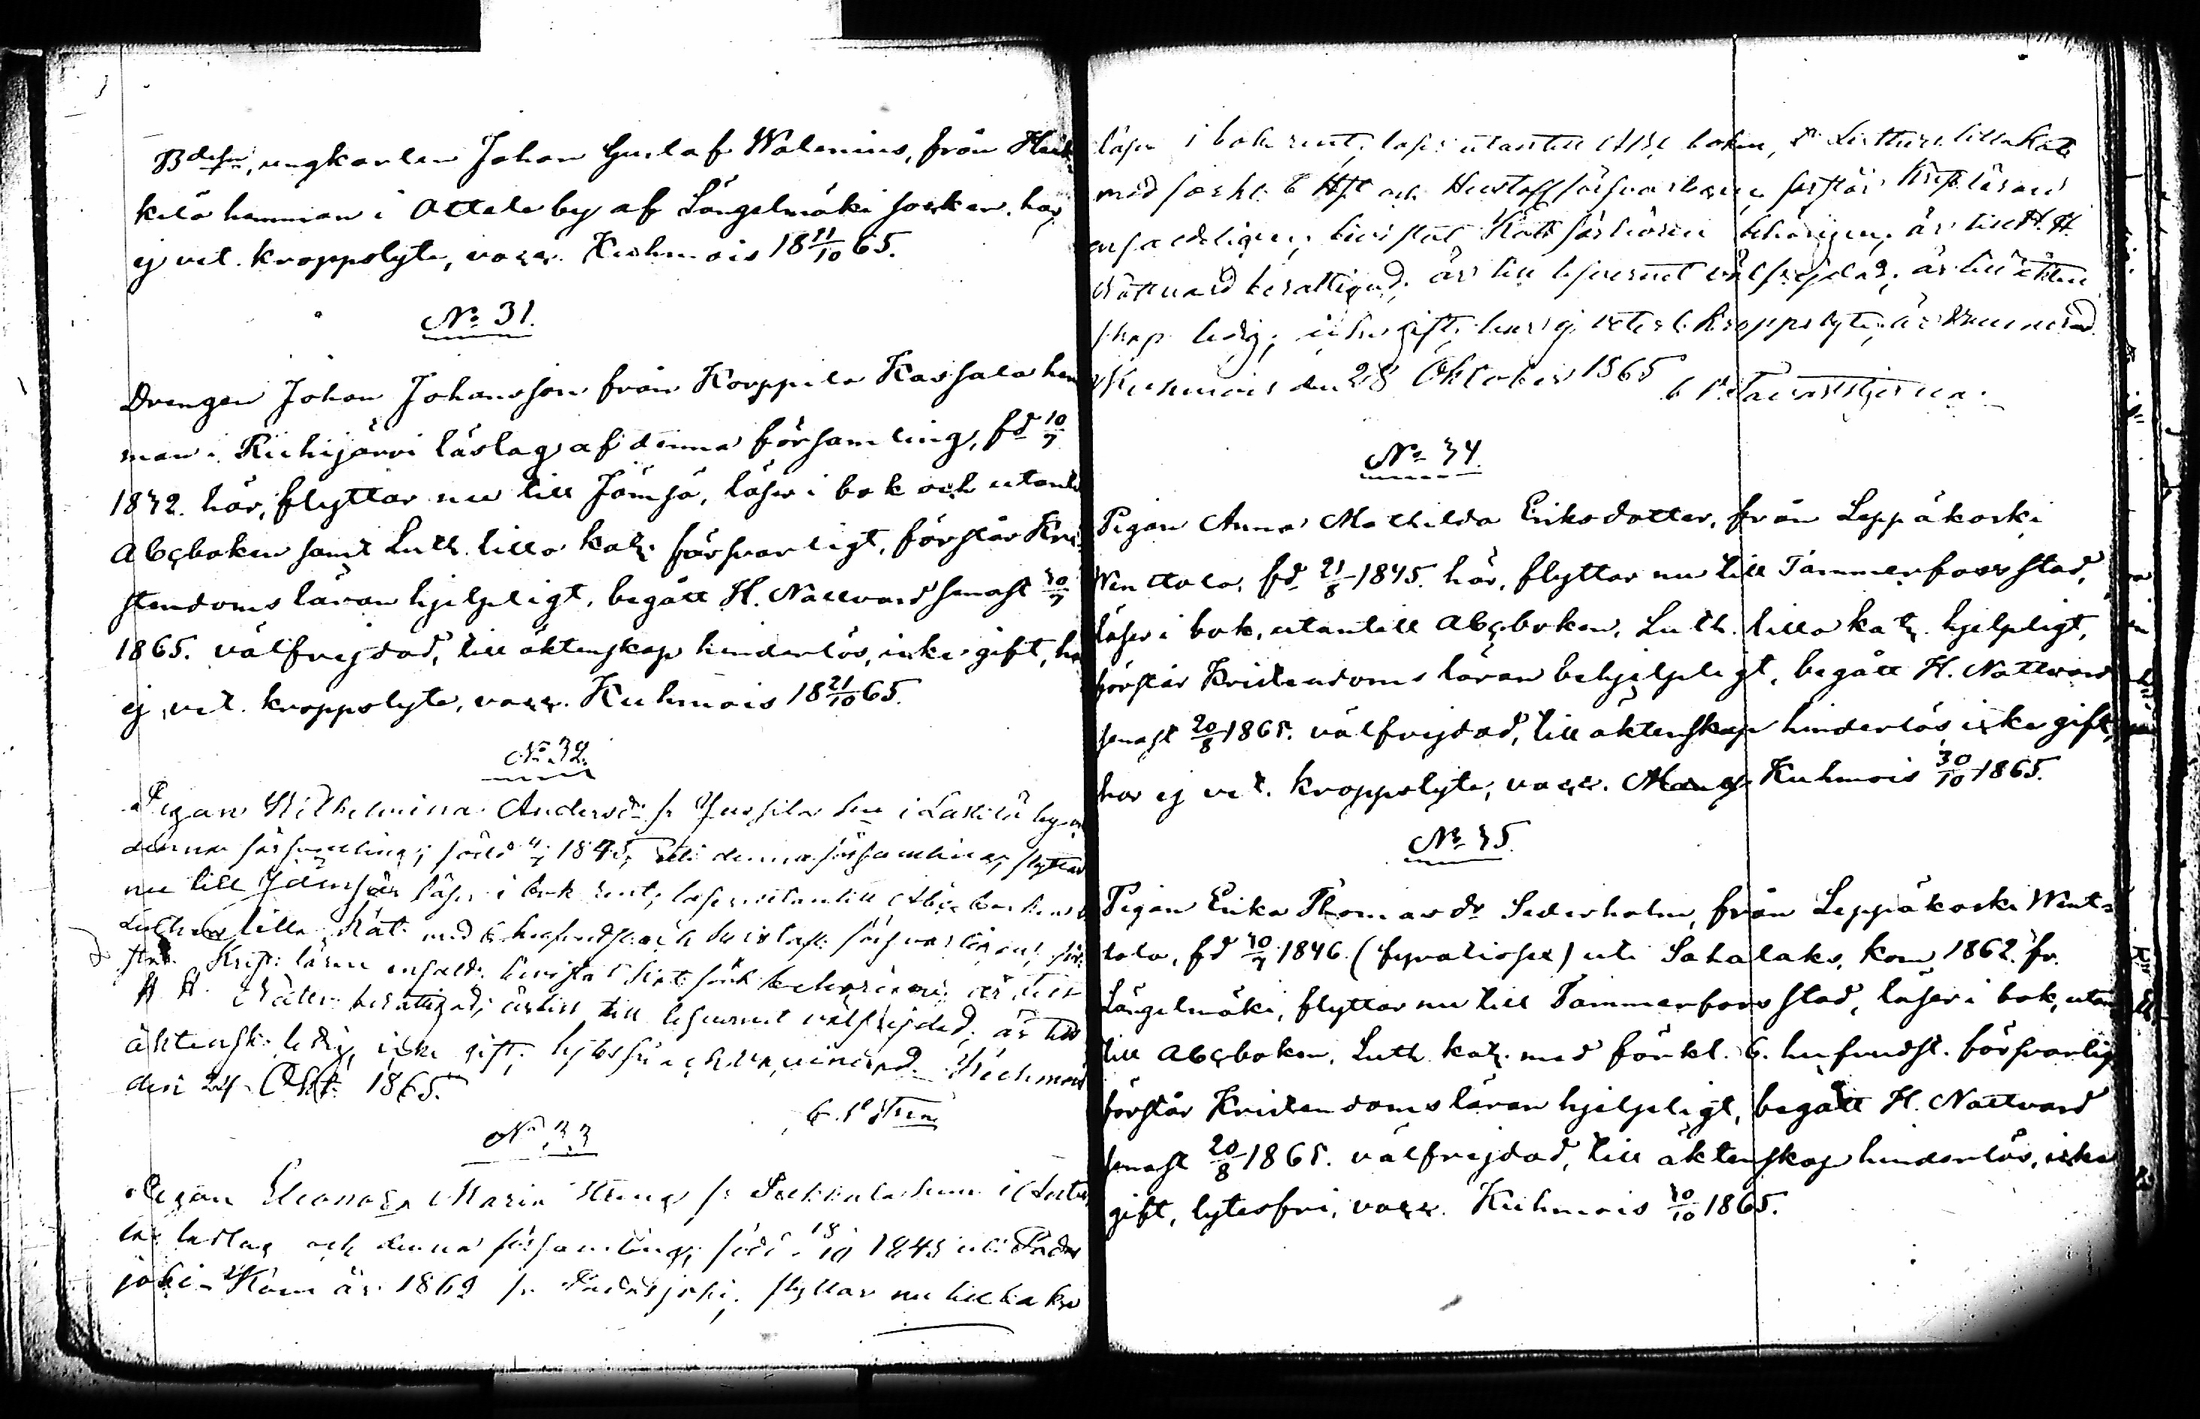 ungkarlen Johan Gustaf Walenius, från Heik
kilä hemman i Attila by af Längelmäki socken. har
ej vet. kroppslyte, vacc. Kuhmois 18 21/10 65.
No 31.
Drengen Johan Johansson från Korppila Kassala hem
man i Riihijärvi läslag af denna församling, fd 10/7
1842. här, flyttar nu till Jämsä, läser i bok och utantill
Abcboken samt Luth. lilla kat. försvarligt, förstår Kri
stendoms läran hjelpligt, begått H. Nattvard senast 30/7
1865. välfrejdad, till äktenskap hinderlös, icke gift, har
ej vet. kroppslyte, vacc. Kuhmois 18 21/10 65.
No 32.
Pigan Wilhelmina Andersdr fr Jussila hem i by
denna församling; född 1845, uti denna församling, flyttar
nu till Jämsä läser i bok rent, läser utantill Abc boken
Luthers lilla Kat. med hufvudst. och försvarligen, för
står Krist. läran enfaldt.
H. H. Nattv. berättigad; till lefvernet välfrejdad, är till
äktensk. ledig, icke gift, lytesfri och vaccinerad. Kuhmois
den 24 Okt. 1865.
No 33
Pigan Eleonora Maria fr Pukkala hem i
läslag och denna församling, född 18/10 1845 uti Padas
joki. Kom år 1862 fr. Padasjoki, flyttar nu tillbaka
läser i bok rent, läser utantill Abc boken, Luthers lilla Kat
med förkl. 6 Hft och Hustafl. försvarligen, förstår Krist. läran
enfaldeligen, bivistat Kat. förhören behörigen, är till H. H.
Nattvard berättigad, är till lefvernet välfrejdad, är till äkten
skap ledig, icke gift, har ej veterl. kroppslyte, är vaccinerad.
Kuhmois den 28 Oktober 1865
No 34.
Pigan Anna Mathilda Eriksdotter, från Leppäkoski
Wenttola, fd. 21/8 1845. här, flyttar nu till Tammerfors stad,
läser i bok, utantill Abcboken, Luth. lilla kat. hjelpligt,
förstår Kristendoms läran behjelpligt, begått H. Nattvard
senast 20/8 1865. välfrejdad, till äktenskap hinderlös, icke gift,
har ej vet. kroppslyte, vacc. Kuhmois 30/10 1865.
No 35.
Pigan Erika Thomasdr Sederholm, från Leppäkoski Went
tola, fd 30/7 1846 (fyratiosex) uti Sahalaks, kom 1862. fr.
Längelmäki, flyttar nu till Tammerfors stad, läser i bok, utan
till Abcboken, Luth. kat. med förkl. 6. hufvudst. försvarlig
förstår Kristendoms läran hjelpligt, begått H. Nattvard
senast 20/8 1865. välfrejdad, till äktenskap hinderlös, icke
gift, lytesfri, vacc. Kuhmois 30/10 1865.